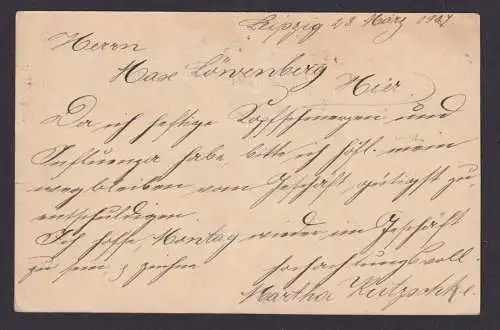 Leipzig 23. März 1907
Herrn
Max Löwenberg
Hier.
Da ich heftige Kopfschmerzen und
Influenza habe, bitte ich höfl. mein
wegbleiben vom Geschäft gütigst zu
entschuldigen.
Ich hoffe, Montag wieder im Geschäft
zu sein, zeichne
hochachtungsvoll
Martha Kutzschke.